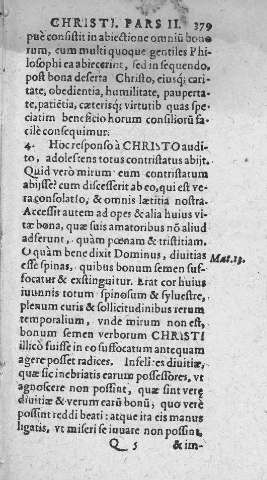 CHRISTI. PARS II. 379
puè consistit in abiectione omniũ bono
rum, cum multi quoque gentiles Phi-
losophi ea abiecerint, sed in sequendo,
post bona deserta Christo, eiusq; cari-
tate, obedientia, humilitate, pauperta-
te, patiẽtia, cæterisq; virtutib quas spe-
ciatim beneficio horum consiliorũ fa-
cilè consequimur.
4. Hoc responso à CHRISTO audi-
to, adolescens totus contristatus abijt.
Quid verò mirum eum contristatum
abijsse? cum discesserit ab eo, qui est ve-
ra consolatio, & omnis lætitia nostra.
Accessit autem ad opes & alia huius vi-
tæ bona, quæ suis amatoribus nõ aliud
adferunt, quàm pœnam & tristitiam.
O quàm bene dixit Dominus, diuitias
esse spinas, quibus bonum semen suf- Mat. 13.
focatur & exstinguitur. Erat cor huius
iuuenis totum spinosum & syluestre,
plenum curis & sollicitudinibus rerum
temporalium, vnde mirum non est,
bonum semen verborum CHRISTI
illicò fuisse in eo suffocatum antequam
agere posset radices. Infelices diuitiæ,
quæ sic inebriatis earum possessores, vt
agnoscere non possint, quæ sint veræ
diuitiæ & verum earũ bonũ, quo verè
possint reddi beati: atque ita eis manus
ligatis, vt miseri se iuuare non possint,
Q 5 & im-